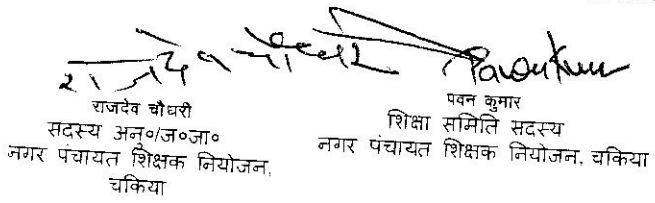 राजदेव चौधरी
राजदेव चौधरी
सदस्य अनु०/ज०जा०
नगर पंचायत शिक्षक नियोजन,
चकिया
Pawan Kumar
पवन कुमार
शिक्षा समिति सदस्य
नगर पंचायत शिक्षक नियोजन, चकिया